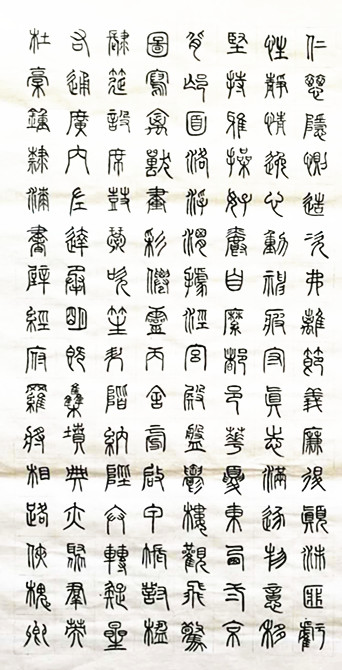 仁慈隱惻造次弗離節義廉退顛沛匪虧
性靜情逸心動神疲守真志滿逐物意移
堅持雅操好爵自縻都邑華夏東西二京
背邙面洛浮渭據涇宮殿盤鬱樓觀飛驚
圖寫禽獸畫彩仙靈丙舍傍啟甲帳對楹
肆筵設席鼓瑟吹笙升階納陛弁轉疑星
右通廣內左達承明既集墳典亦聚群英
杜稾鍾隸漆書壁經府羅將相路俠槐卿